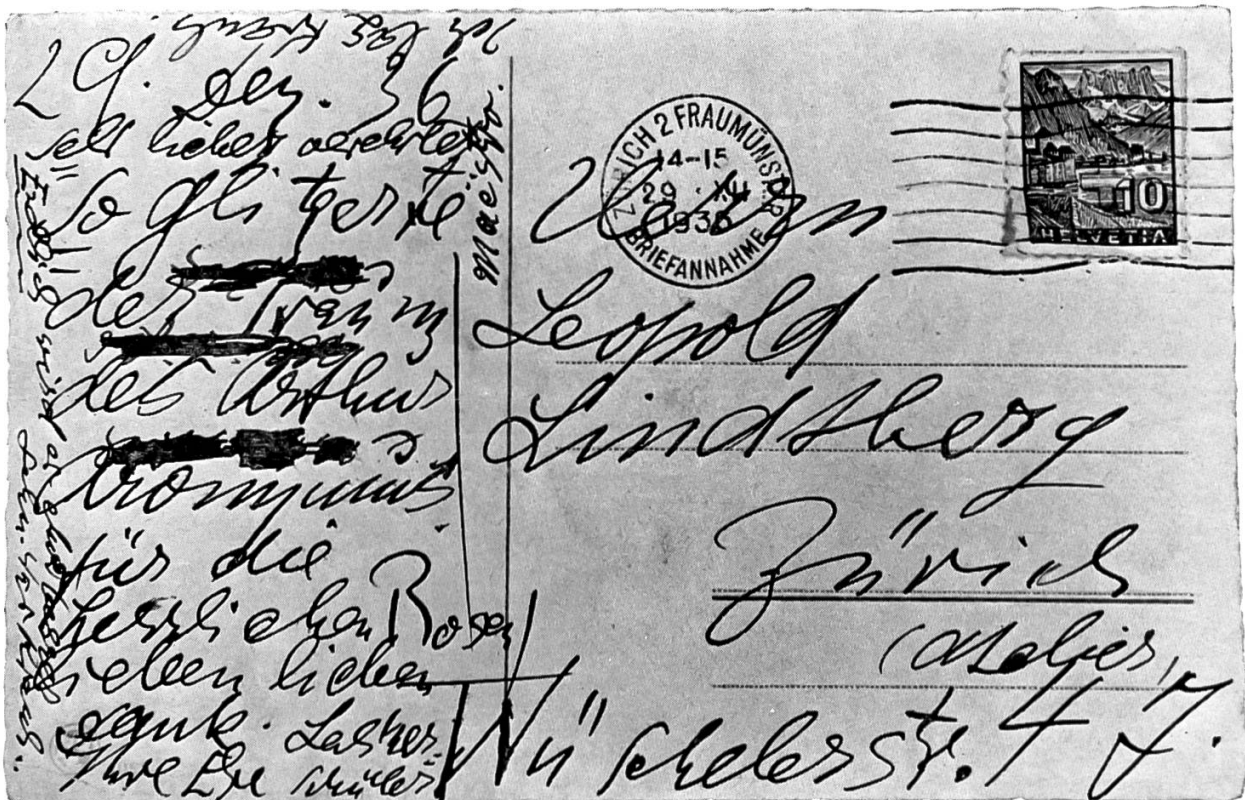 Ich lag krank
29. Dez. 36
sehr lieber verehrter
So glitzerte
der Traum
des Arthur
Aronymus
für die
herrlichen Rosen
lieben lieben
Dank.
Ihre Else Lasker-Schüler
"Endlich wird er
ZÜRICH 2 FRAUMÜNSTER
14-15
29. XII
1936
BRIEFANNAHME
10
HELVETIA
Herrn
Leopold
Lindtberg
Zürich
(Atelier)
Nüschelerstr. 47.